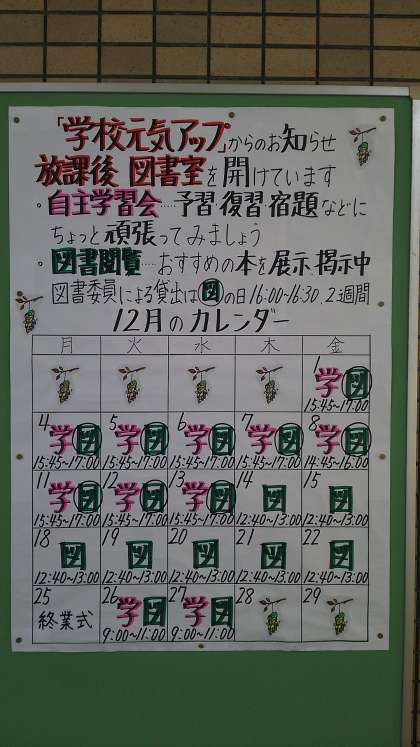 「学校元気アップ」からのお知らせ
放課後 図書室を開けています
・自主学習会…予習 復習 宿題などに
ちょっと頑張ってみましょう
・図書閲覧…おすすめの本を展示、掲示中
図書委員による貸出は図の日16:00~16:30、2週間
12月のカレンダー
月 火 水 木 金
1
学図
15:45~17:00
4 5 6 7 8
学図 学図 学図 学図 学図
15:45~17:00 15:45~17:00 15:45~17:00 15:45~17:00 14:45~16:00
11 12 13 14 15
学図 学図 学図 図 図
15:45~17:00 15:45~17:00 15:45~17:00 12:40~13:00 12:40~13:00
18 19 20 21 22
図 図 図 図 図
12:40~13:00 12:40~13:00 12:40~13:00 12:40~13:00 12:40~13:00
25 26 27 28 29
終業式 学図 学図
9:00~11:00 9:00~11:00